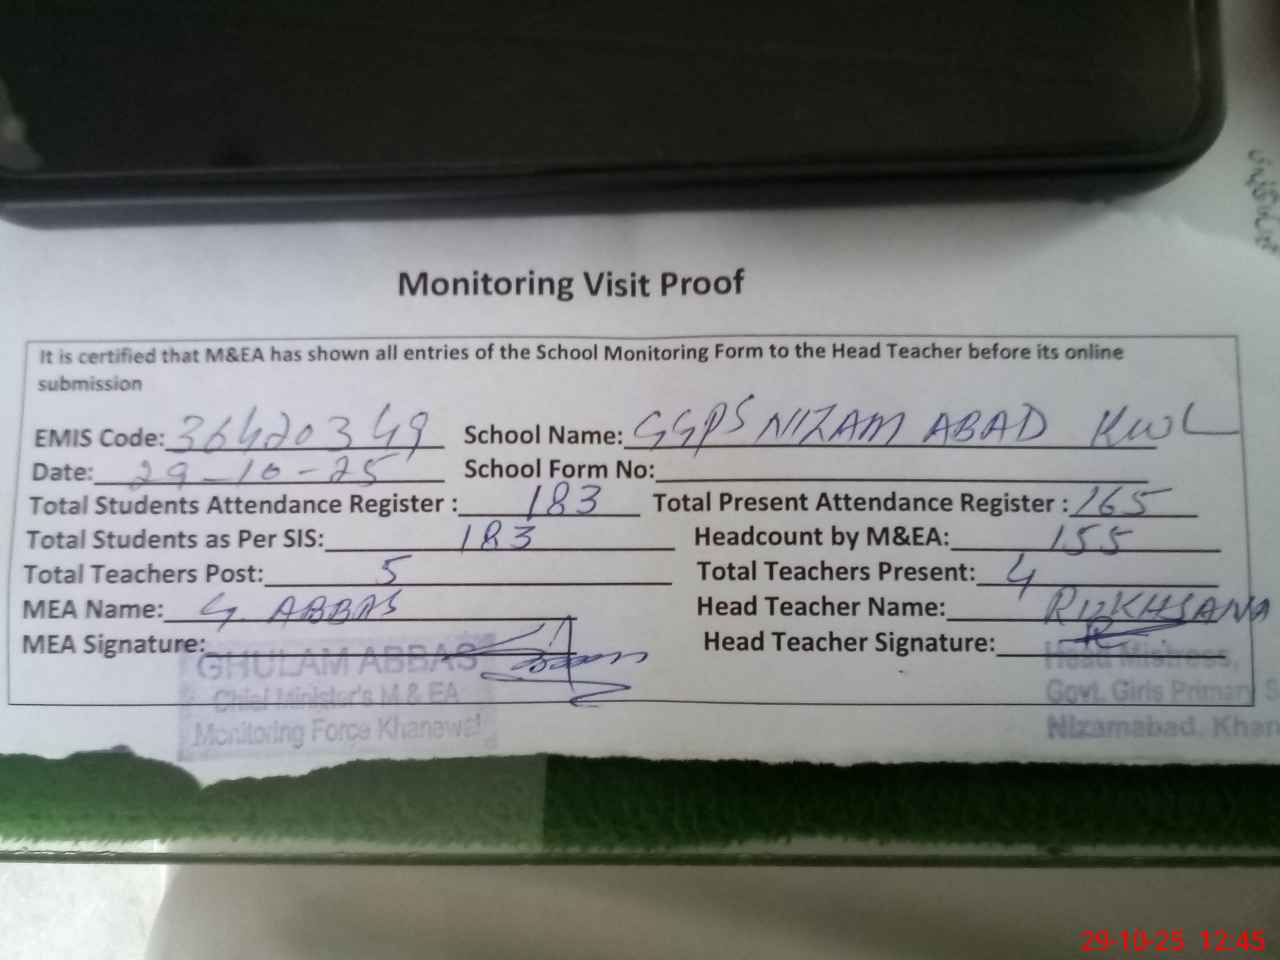 Monitoring Visit Proof
It is certified that M&EA has shown all entries of the School Monitoring Form to the Head Teacher before its online
submission
EMIS Code: 36420349 School Name: GGPS NIZAM ABAD KWL
Date: 29-10-25 School Form No:
Total Students Attendance Register : 183 Total Present Attendance Register : 165
Total Students as Per SIS: 183 Headcount by M&EA: 155
Total Teachers Post: 5 Total Teachers Present: 4
MEA Name: G. ABBAS Head Teacher Name: RUKHSANA
MEA Signature: Head Teacher Signature:
GHULAM ABBAS
Chief Minister's M & EA
Monitoring Force Khanewal
Head Mistress,
Govt. Girls Primary S
Nizamabad, Khan
29-10-25 12:45